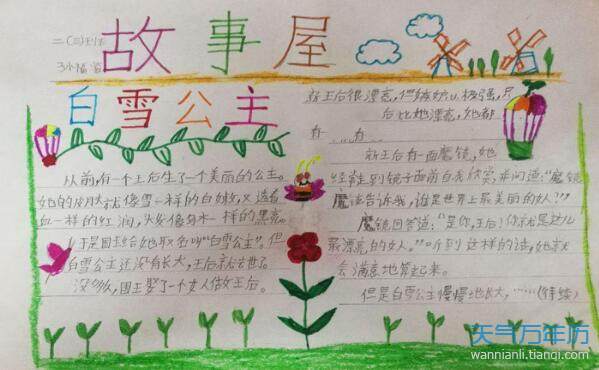 二(三)班
故事屋
白雪公主
从前,有一个王后生了一个美丽的公主。
她的皮肤就像雪一样的白嫩,又透着
血一样的红润,头发像乌木一样的黑亮。
于是国王给她取名叫“白雪公主”,但
白雪公主还没有长大,王后就去世了。
没多久,国王娶了一个女人做女王后。
新王后很漂亮,但嫉妒心极强,只
后比她漂亮,她都
有……有
新王后有一面魔镜,她
经常到镜子面前自我欣赏,并问道:“魔镜
告诉我,谁是世界上最美丽的女人?”
魔镜回答道:“是你,王后!你就是这儿
最漂亮的女人,”听到这样的话,她就
会满意地笑起来。
但是白雪公主慢慢地长大,……(待续)
天气万年历
wannianli.tianqi.com